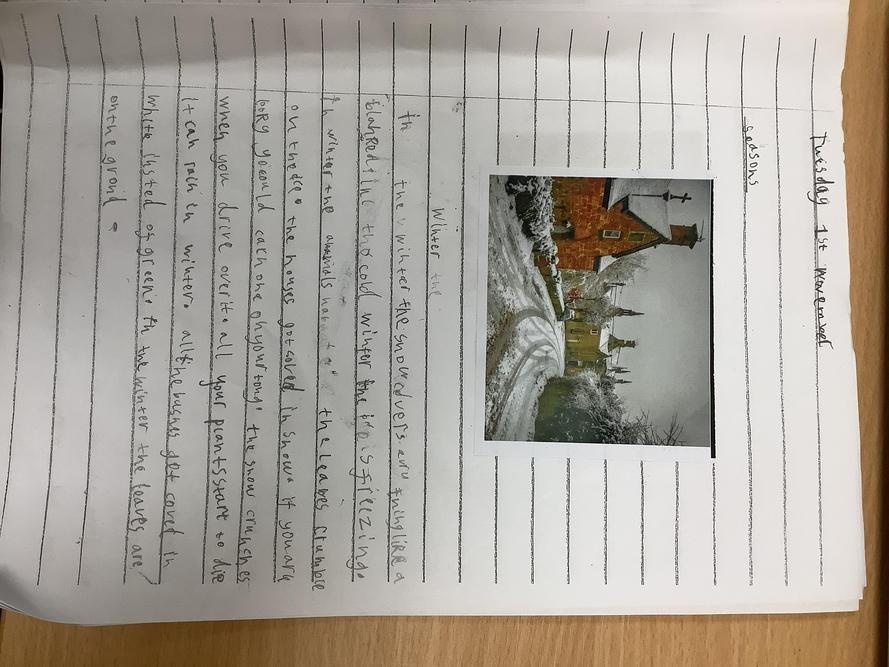 Tuesday 1st november
seasons
Winter the
In the winter the snow covers evrything like a
in the cold winter the is freezing.
In winter the the leaves crumble
on the the houses got coved in snow. if you are
you could cach one on your tong. the snow crunches
when you drive over it. all your plants start to die
it can rain in winter. all the bushes get coved in
white insted of green. In the winter the leaves are
on the grond.